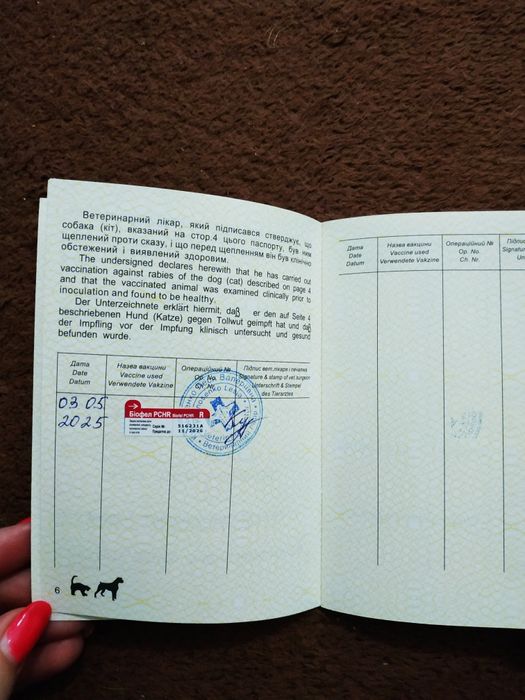 Ветеринарний лікар, який підписався стверджує, що
собака (кіт), вказаний на стор.4 цього паспорту, був ним
щеплений проти сказу, і що перед щепленням він був клінічно
обстежений і виявлений здоровим.
The undersigned declares herewith that he has carried out
vaccination against rabies of the dog (cat) described on page 4
and that the vaccinated animal was examined clinically prior to
inoculation and found to be healthy.
Der Unterzeichnete erklärt hiermit, daβ er den auf Seite 4
beschriebenen Hund (Katze) gegen Tollwut geimpft hat und daβ
der Impfling vor der Impfung klinisch untersucht und gesund
befunden wurde.
Дата Назва вакцини Операційний № Підпис вет.лікаря і печатка
Date Vaccine used Op. No. Signature & stamp of vet.surgeon
Datum Verwendete Vakzine Nr. Unterschrift & Stempel
des Tierarztes
03 05
2025
Біофел PCHR Biofel PCHR R
Серія № 516231A
Придатна до 11/2026
Валеріївна
6
Дата Назва вакцини Операційний №
Date Vaccine used Op. No.
Datum Verwendete Vakzine Ch. Nr.